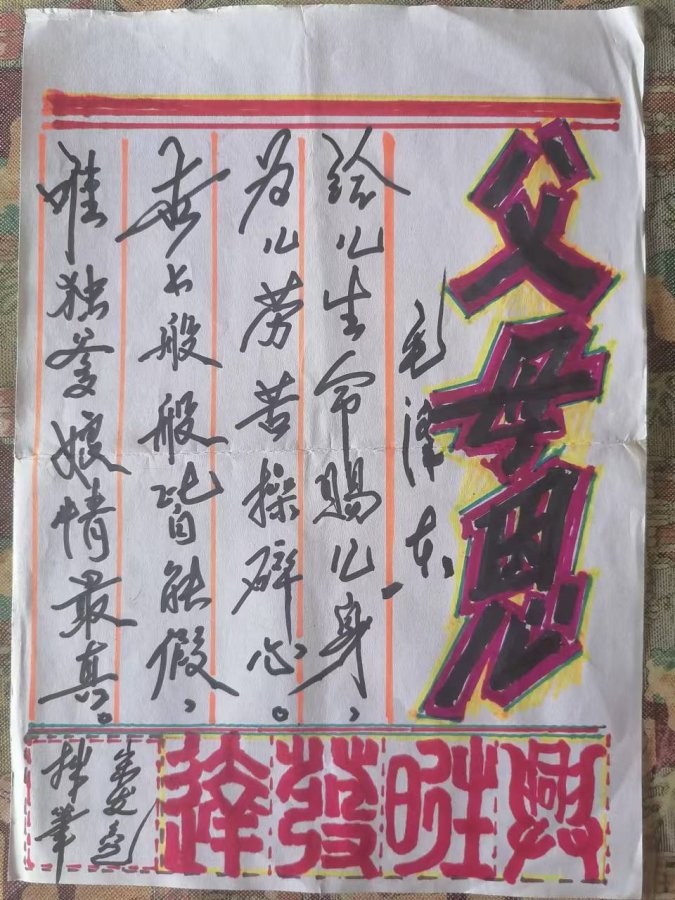 父母恩
毛泽东
给儿生命赐儿身、
为儿劳苦操碎心。
世上般般皆能假、
唯独爹娘情最真。
興旺發達
拙筆